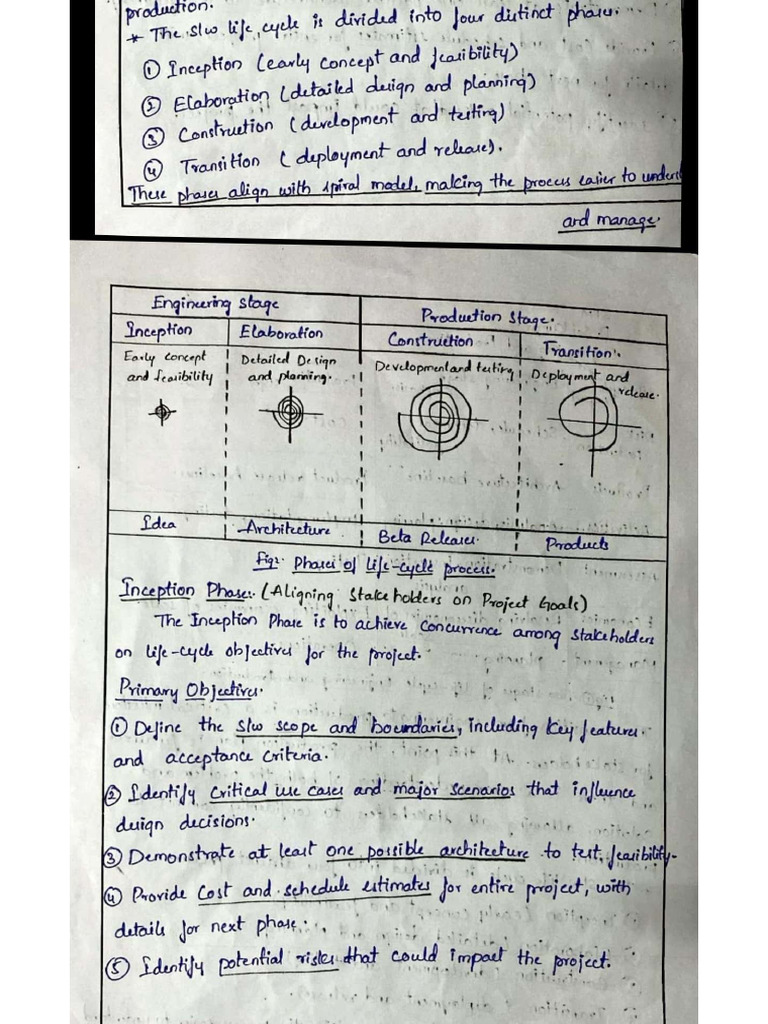 production.
* The S/w life cycle is divided into four distinct phases.
① Inception (early concept and feasibility)
② Elaboration (detailed design and planning)
③ Construction (development and testing)
④ Transition (deployment and release).
These phases align with spiral model, making the process easier to underst
and manage.
Engineering stage
Production stage.
Inception
Elaboration
Construction
Transition.
Early concept
and feasibility
Detailed Design
and planning.
Development and testing
Deployment and
release.
Idea
Architecture
Beta Releases.
Products
Fig: Phases of life-cycle process.
Inception Phase: (Aligning Stakeholders on Project Goals)
The Inception Phase is to achieve concurrence among stakeholders
on life-cycle objectives for the project.
Primary Objectives.
① Define the S/w scope and boundaries, including key features
and acceptance criteria.
② Identify critical use cases and major scenarios that influence
design decisions.
③ Demonstrate at least one possible architecture to test feasibility.
④ Provide cost and schedule estimates for entire project, with
details for next phase.
⑤ Identify potential risks that could impact the project.